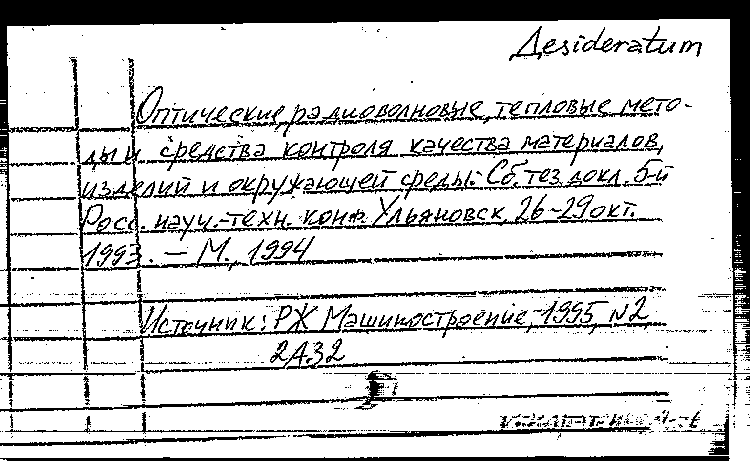 Desideratum
Оптические, радиоволновые, тепловые мето-
ды и средства контроля качества материалов,
изделий и окружающей среды: Сб. тез. докл. 5-й
Росс. науч.-техн. конф. Ульяновск, 26-29 окт.
1993. — М., 1994
Источник: РЖ Машиностроение, 1995, N2
2А32